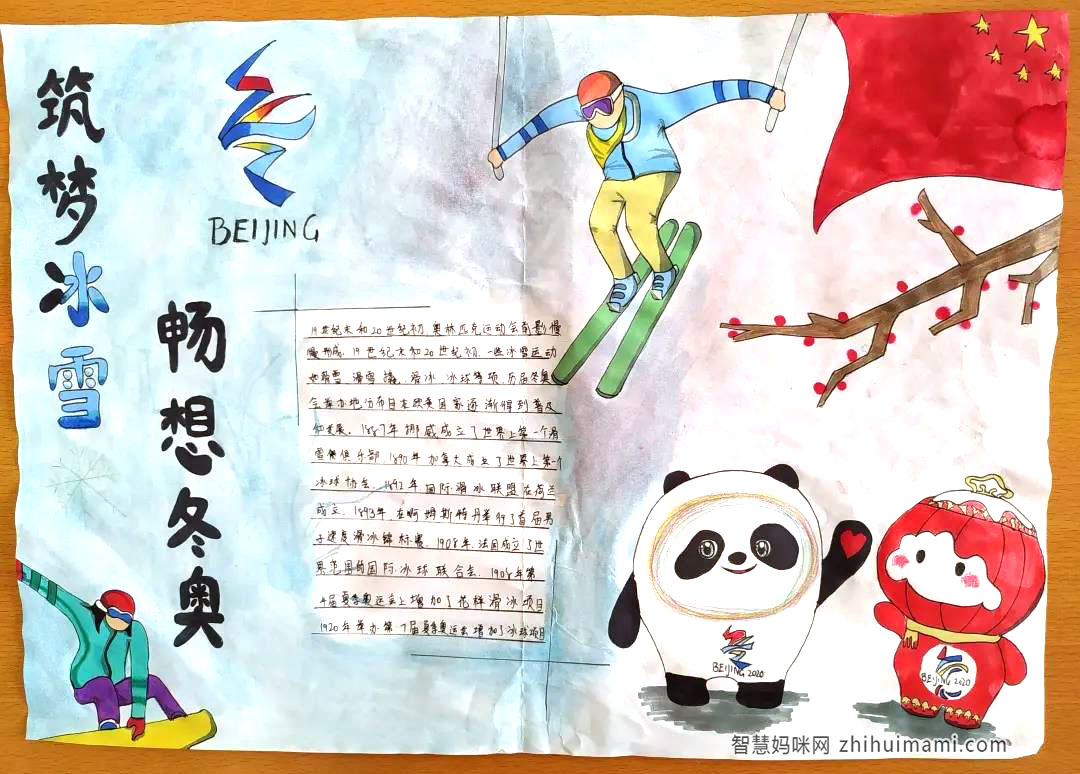 筑梦冰雪
畅想冬奥
BEIJING
19世纪末和20世纪初，奥林匹克运动会
形成。19世纪末和20世纪初，一些冰雪运动
如滑雪 滑雪 滑冰、冰球等项 历届冬奥
会举办地分布日本欧美国家逐渐得到普及
和发展。1887年挪威成立了世界上第一个滑
雪俱乐部，1890年加拿大成立了世界上第一个
冰球协会，1892年国际滑冰联盟在荷兰
成立，1893年在阿姆斯特丹举行了首届男
子速度滑冰锦标赛。1908年，法国成立了世
界范围的国际冰球联合会，1908年第
4届夏季奥运会上增加了花样滑冰项目
1920年举办第7届夏季奥运会增加了冰球项目
BEIJING 2020
BEIJING 2020
智慧妈咪网 zhihuimami.com